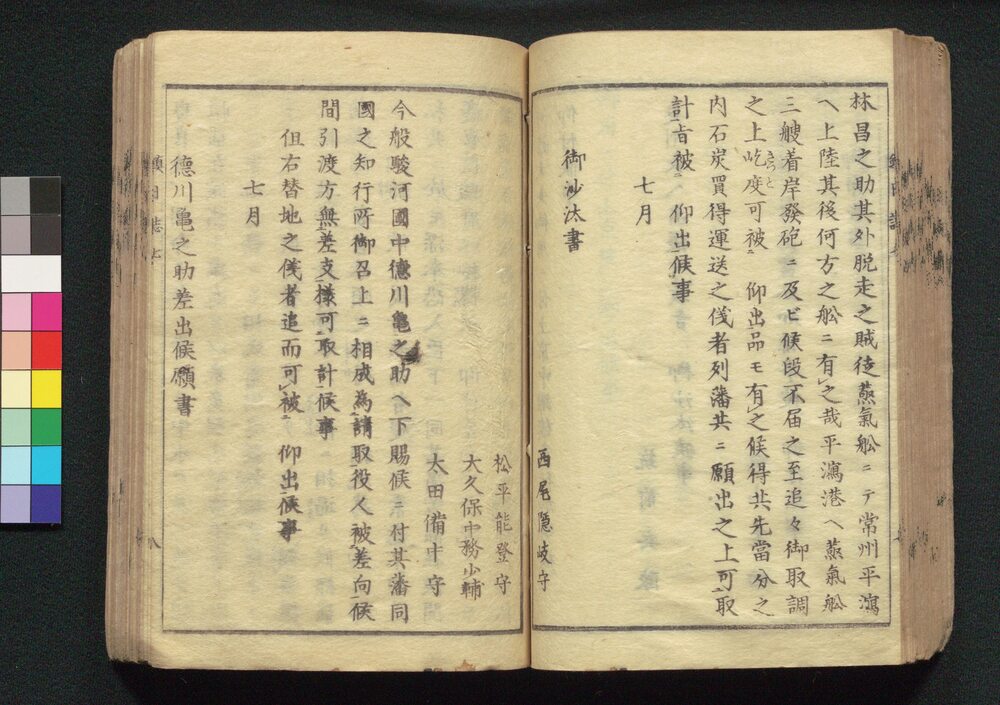 林昌之助其外脱走之賊徒蒸氣舩ニテ常州平瀉
ヘ上陸其後何方之舩ニ有之哉平瀉港ヘ蒸氣舩
三艘着岸發砲ニ及ビ候段不届之至追々御取調
之上屹度可被仰出品モ有之候得共先當分之
きつと
内石炭買得運送之儀者列藩共ニ願出之上可取
計旨被仰出候事
七月
御沙汰書
西尾隱岐守
松平能登守
大久保中務少輔
太田備中守
今般駿河國中德川亀之助ヘ下賜候ニ付其藩同
國之知行所御召上ニ相成為請取役人被差向候
間引渡方無差支様可取計候事
但右替地之儀者追而可被仰出候事
七月
德川亀之助差出候願書
八